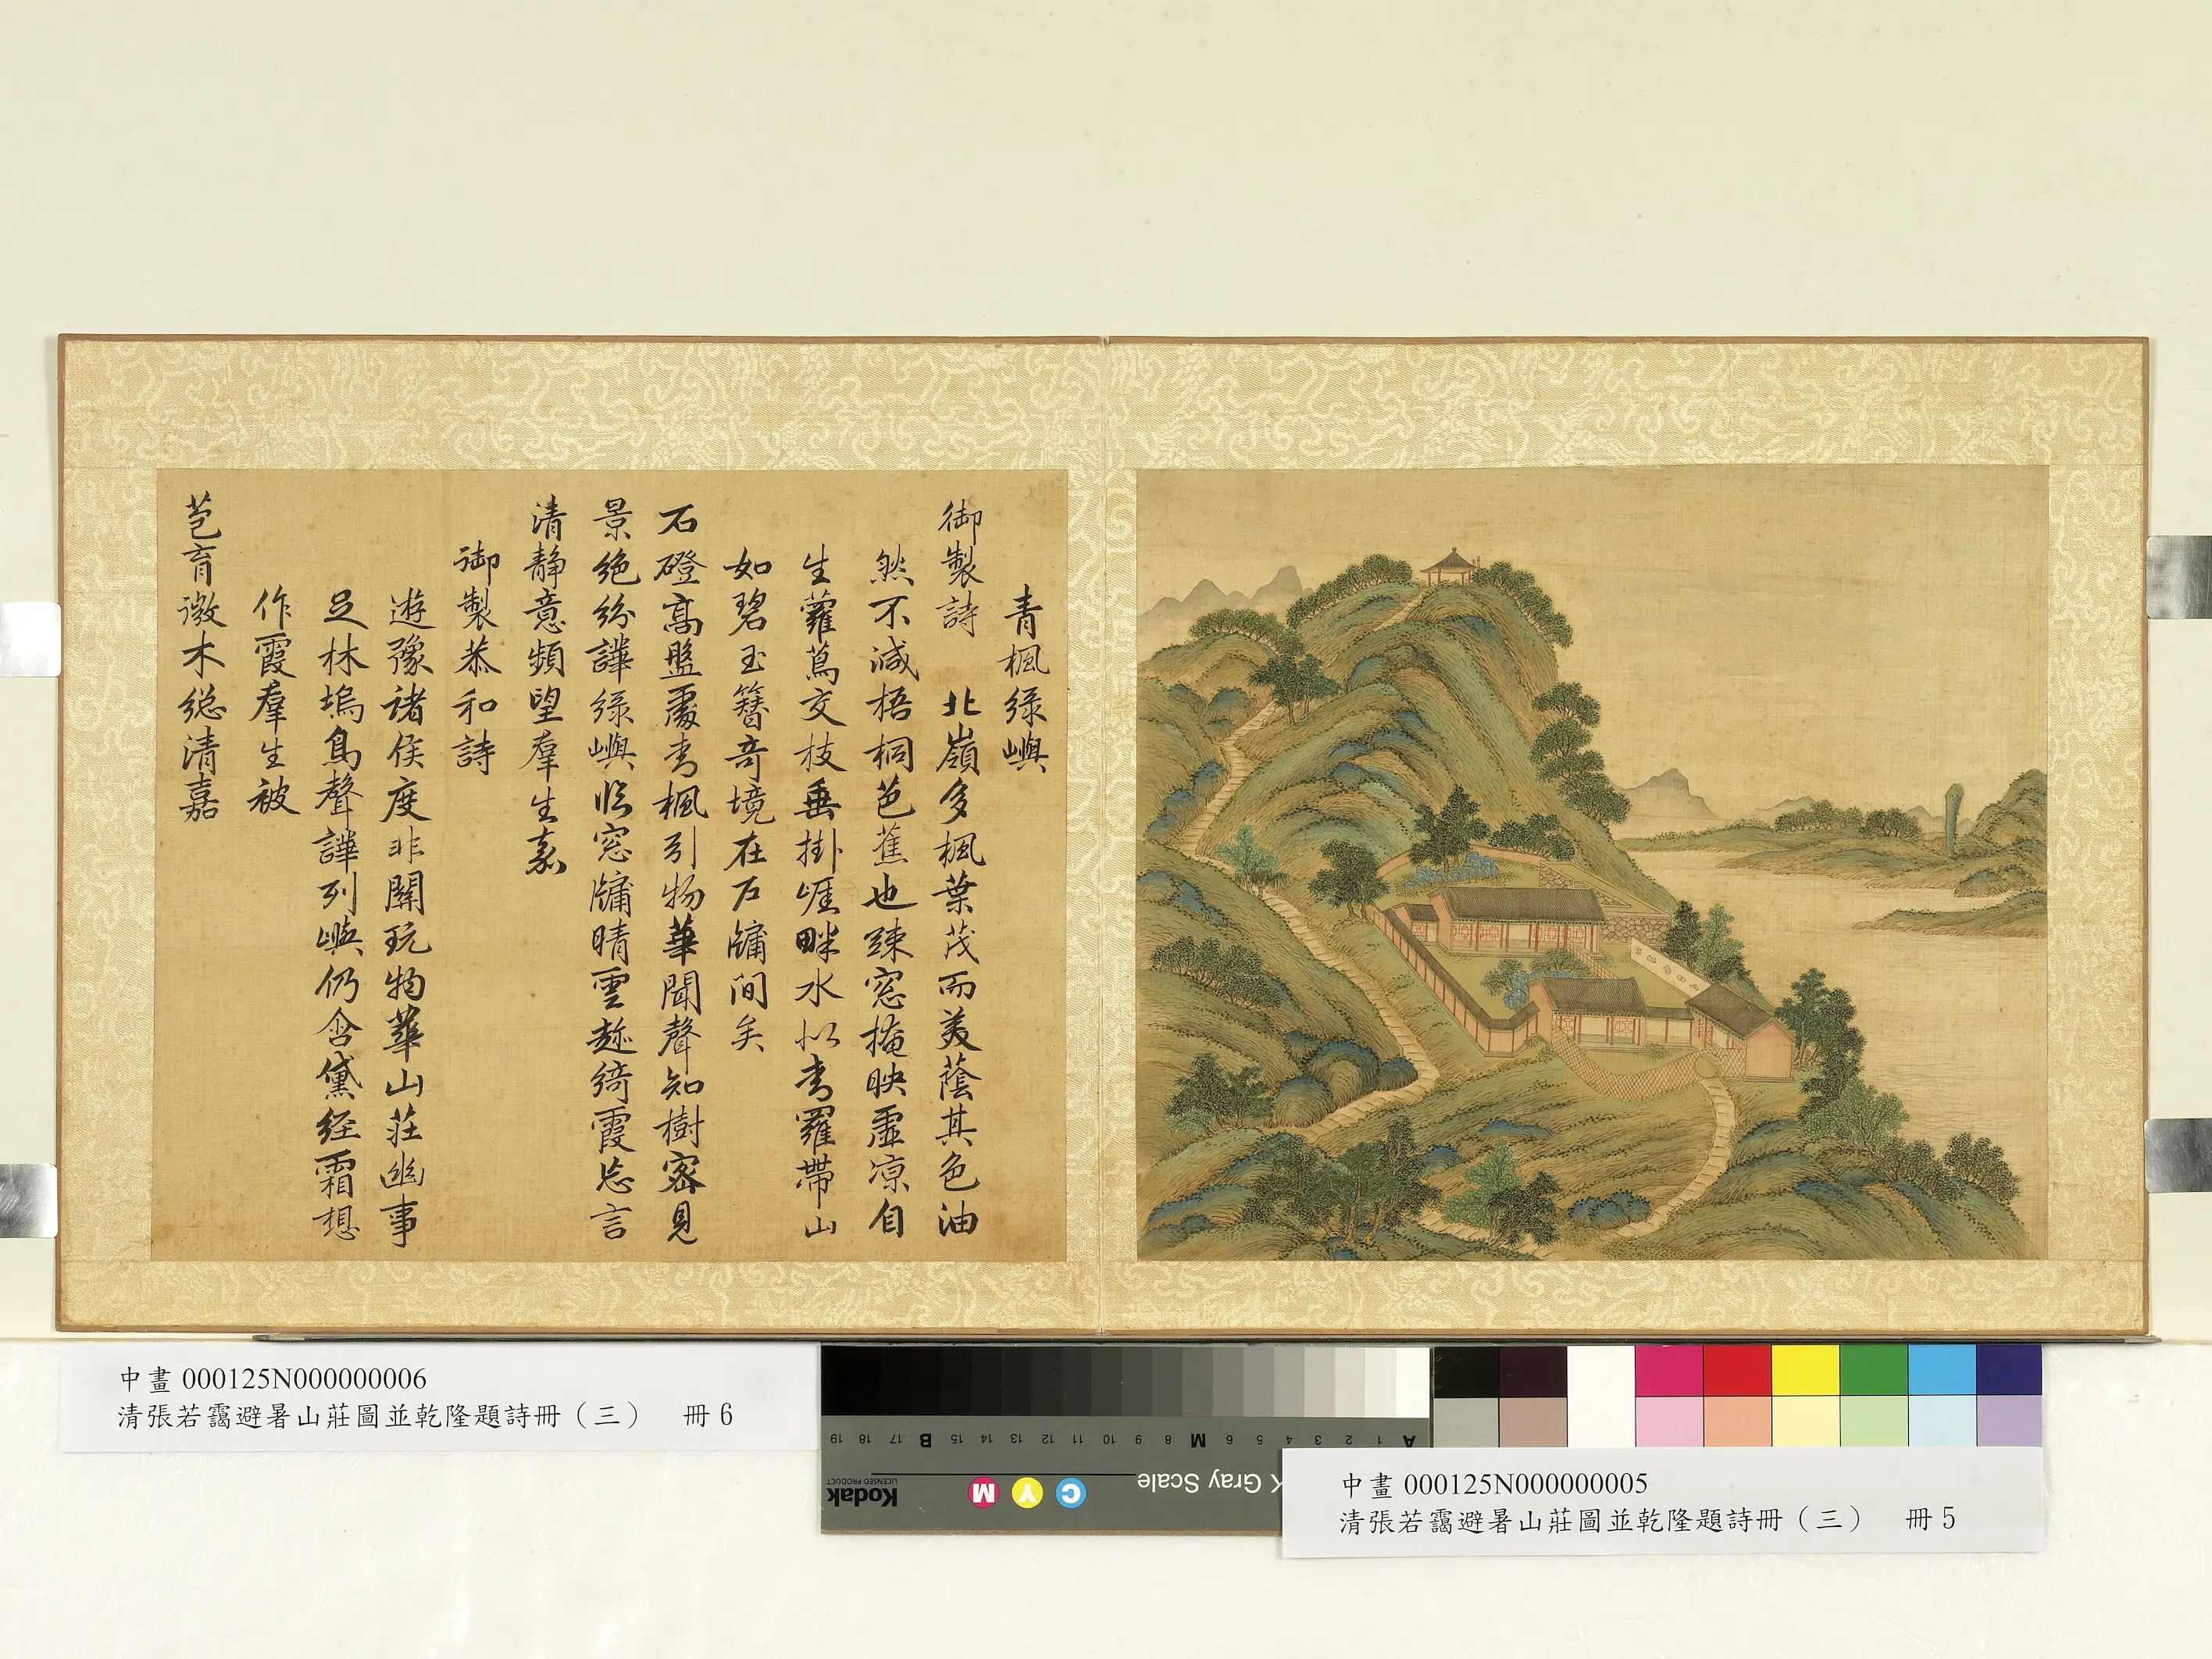 青楓綠嶼
御製詩　北嶺多楓葉茂而美蔭其色油
然不減梧桐芭蕉也踈窓掩映虛涼自
生蘿蔦交枝垂掛崕畔水似青羅帶山
如碧玉簪奇境在戶牖間矣
石磴高盤處青楓引物華聞聲知樹密見
景絕紛譁綠嶼臨窓牖晴雲趂綺霞忘言
清静意頻望羣生嘉
御製恭和詩
遊豫諸侯度非關玩物華山莊幽事
足林塢鳥聲譁列嶼仍含黛經霜想
作霞羣生被
苞育徵木總清嘉
中畫 000125N000000006
清張若靄避暑山莊圖並乾隆題詩冊（三）　冊 6
A 1 2 3 4 5 6 M 8 9 10 11 12 13 14 15 B 17 18 19
Kodak
LICENSED PRODUCT
C Y M
Gray Scale
中畫 000125N000000005
清張若靄避暑山莊圖並乾隆題詩冊（三）　冊 5